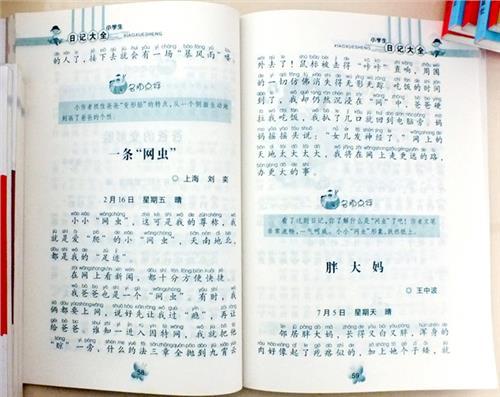 小学生
日记大全
XIAOXUESHENG
的人了，接下去就会有一场“暴风雨”喽。
名师点评
小作者抓住爸爸“变形脸”的特点，从一个侧面生动地
刻画了爸爸的个性。
一条“网虫”
◎上海 刘奕
2月16日 星期五 晴
小小“网虫”，这可是我的尊称，我
就是爱“爬”的小“网虫”，天南地北，
都是我的“足迹”。
在网上看新闻，都十分方便快捷。
我爸爸也是一个“网虫”。有时，我
俩都要上网，说好先让我过“瘾”，再让
给爸爸。谁知一进入因特网，我就把他
“晾”一旁，什么约法三章全抛到九霄云
58
小学生
日记大全
XIAOXUESHENG
外去了！鼠标被击得“咔咔”直响，周围
的一切仿佛消失得无影无踪。吃饭的时间
到了，我却仍然沉浸在“网”中。爸爸棒
我去吃饭，我扒了几口就回到电脑旁。妈
妈摇摇头说：“女儿发神经了。”网上的
天地太大太大，我将在网上走更远的路，
办更大的事。
名师点评
看了这则日记，你了解什么是“网虫”了吧！作者文笔
非常流畅，一气呵成。小小“网虫”形象，跃然纸上。
胖大妈
◎王中波
7月5日 星期天 晴
邻居胖大妈，长得又白又胖，浑身的
肉好像起了疙瘩似的，加上她个子矮，就
59